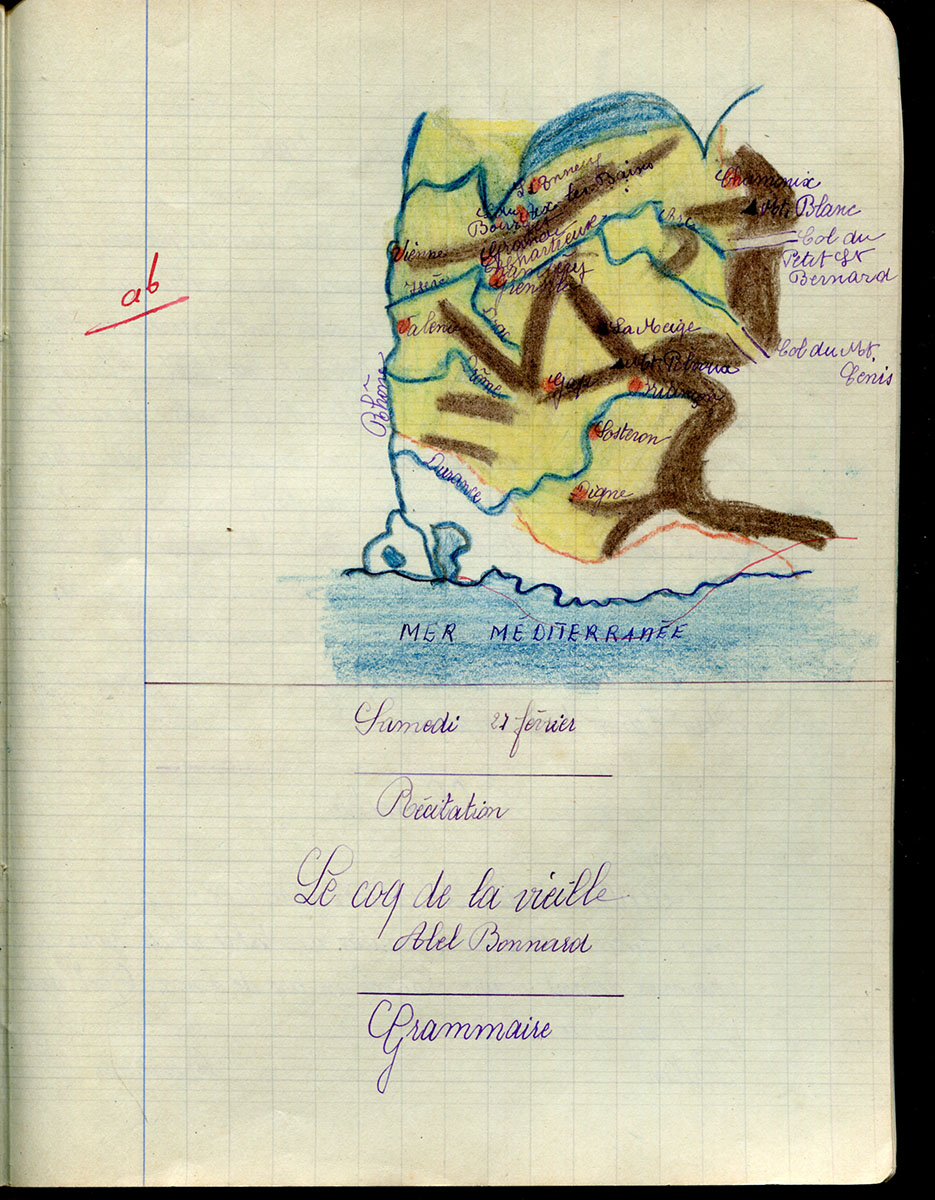 Annecy
Aix-les-Bains
Chamonix
Mt Blanc
Arc
Col du
Petit St
Bernard
Vienne
Grande
Chartreuse
Isère
Grenoble
Valence
Drac
La Meige
Mt Pelvoux
Col du Mt
Cenis
Drôme
Gap
Briançon
Rhône
Sisteron
Durance
Digne
MER MÉDITERRANÉE
ab
Samedi 27 février
Récitation
Le coq de la vieille
Abel Bonnard
Grammaire